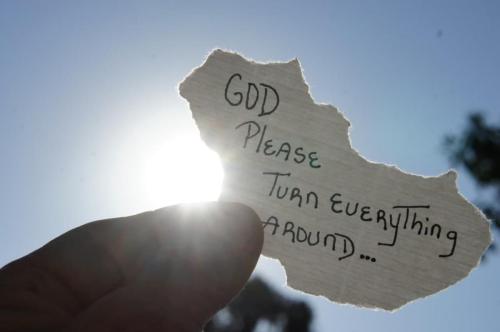 GOD
PLEASE
TURN EVERYTHING
AROUND...